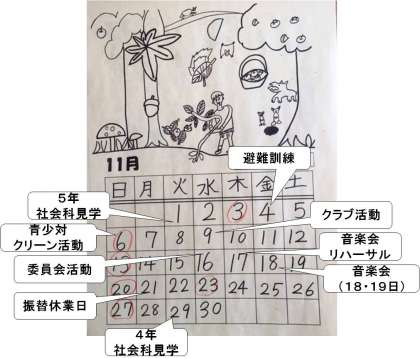 避難訓練
11月
5年
社会科見学
日 月 火 水 木 金 土
1 2 3 4 5
クラブ活動
青少対
クリーン活動
6 7 8 9 10 11 12
音楽会
リハーサル
委員会活動
13 14 15 16 17 18 19
音楽会
(18・19日)
振替休業日
20 21 22 23 24 25 26
27 28 29 30
4年
社会科見学